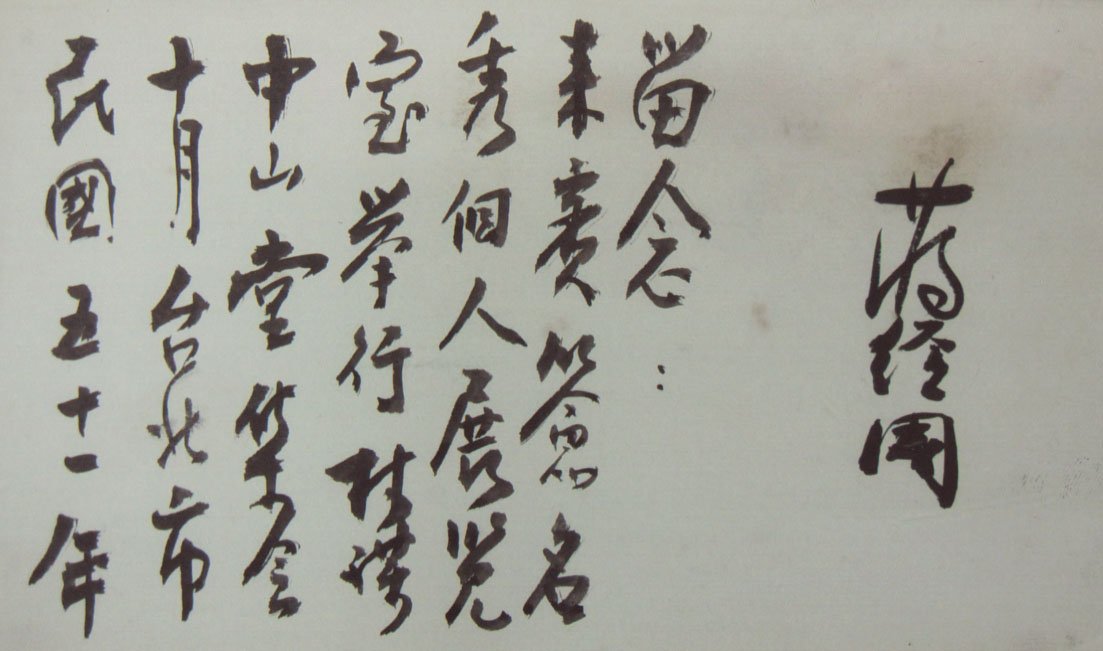 民國五十一年
十月台北市
中山堂集会
室举行
秀個人展览
来賓簽名
留念：
蔣經國